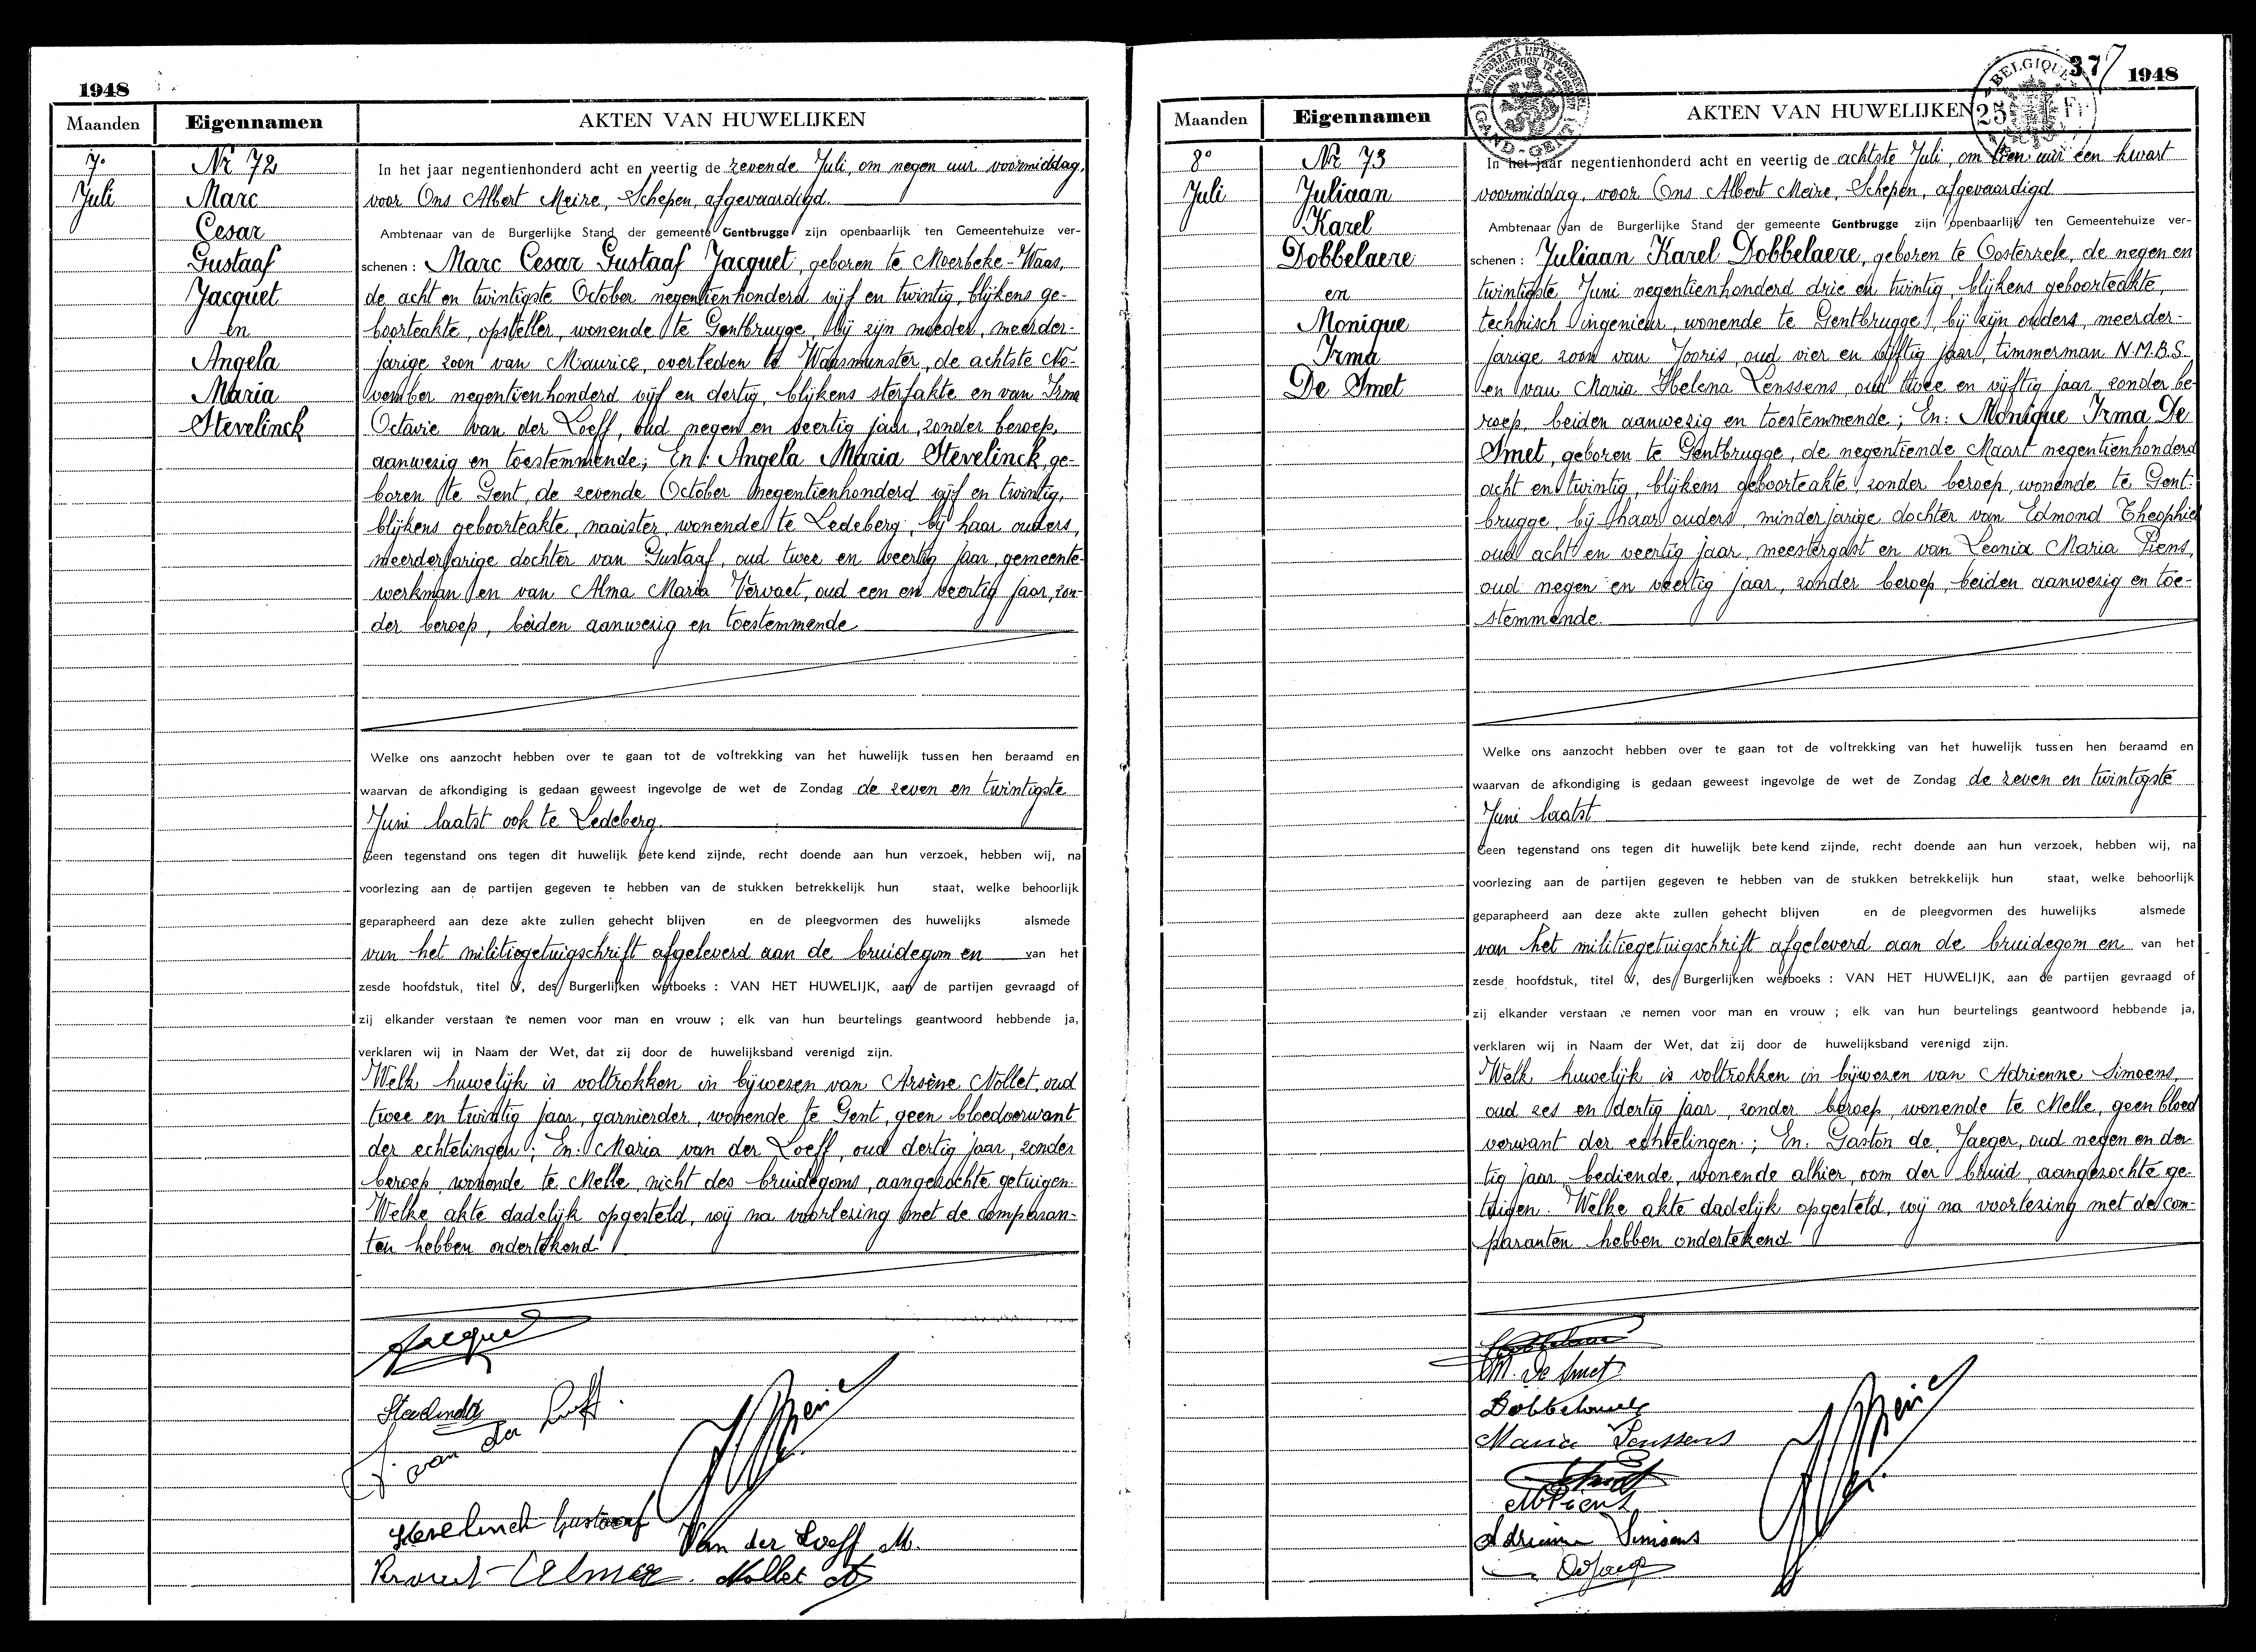 1948
Maanden
Eigennamen
AKTEN VAN HUWELIJKEN
7e
Juli
Nr 72
Marc
Cesar
Gustaaf
Jacquet
en
Angela
Maria
Stevelinck
In het jaar negentienhonderd acht en veertig de zevende Juli, om negen uur voormiddag,
voor Ons Albert Meire, Schepen, afgevaardigd.
Ambtenaar van de Burgerlijke Stand der gemeente Gentbrugge zijn openbaarlijk ten Gemeentehuize ver-
schenen : Marc Cesar Gustaaf Jacquet, geboren te Moerbeke-Waas,
de acht en twintigste October negentienhonderd vijf en twintig, blijkens ge-
boorteakte, opsteller, wonende te Gentbrugge, bij zijn moeder, meerder-
jarige zoon van Maurice, overleden te Waasmunster, de achtste No-
vember negentienhonderd vijf en dertig, blijkens sterfakte en van Irma
Octavie van der Loeff, oud negen en veertig jaar, zonder beroep,
aanwezig en toestemmende; En : Angela Maria Stevelinck, ge-
boren te Gent, de zevende October negentienhonderd vijf en twintig,
blijkens geboorteakte, naaister, wonende te Ledeberg, bij haar ouders,
meerderjarige dochter van Gustaaf, oud twee en veertig jaar, gemeente-
werkman en van Alma Maria Vervaet, oud een en veertig jaar, zon-
der beroep, beiden aanwezig en toestemmende
Welke ons aanzocht hebben over te gaan tot de voltrekking van het huwelijk tussen hen beraamd en
waarvan de afkondiging is gedaan geweest ingevolge de wet de Zondag de zeven en twintigste
Juni laatst ook te Ledeberg.
Geen tegenstand ons tegen dit huwelijk betekend zijnde, recht doende aan hun verzoek, hebben wij, na
voorlezing aan de partijen gegeven te hebben van de stukken betrekkelijk hun staat, welke behoorlijk
geparapheerd aan deze akte zullen gehecht blijven en de pleegvormen des huwelijks alsmede
van het militiegetuigschrift afgeleverd aan de bruidegom en van het
zesde hoofdstuk, titel V, des Burgerlijken wetboeks : VAN HET HUWELIJK, aan de partijen gevraagd of
zij elkander verstaan te nemen voor man en vrouw ; elk van hun beurtelings geantwoord hebbende ja,
verklaren wij in Naam der Wet, dat zij door de huwelijksband verenigd zijn.
Welk huwelijk is voltrokken in bijwezen van Arsène Nollet, oud
twee en twintig jaar, garnierder, wonende te Gent, geen bloedverwant
der echtelingen; En: Maria van der Loeff, oud dertig jaar, zonder
beroep, wonende te Melle, nicht des bruidegoms, aangezochte getuigen.
Welke akte dadelijk opgesteld, wij na voorlezing met de comparan-
ten hebben ondertekend
Jacquet
Stevelinck
J. van der Loeff.
Stevelinck Gustaaf
Van der Loeff M.
Nollet
37
1948
TIMBRE A L'EXTRAORDINAIRE
GAND-GENT
BELGIQUE
25 Fr
Maanden
Eigennamen
AKTEN VAN HUWELIJKEN
8e
Juli
Nr 73
Juliaan
Karel
Dobbelaere
en
Monique
Irma
De Smet
In het jaar negentienhonderd acht en veertig de achtste Juli, om tien uur een kwart
voormiddag, voor Ons Albert Meire, Schepen, afgevaardigd
Ambtenaar van de Burgerlijke Stand der gemeente Gentbrugge zijn openbaarlijk ten Gemeentehuize ver-
schenen : Juliaan Karel Dobbelaere, geboren te Oosterzele, de negen en
twintigste Juni negentienhonderd drie en twintig, blijkens geboorteakte,
technisch ingenieur, wonende te Gentbrugge, bij zijn ouders, meerder-
jarige zoon van Jooris, oud vier en vijftig jaar, timmerman N.M.B.S.
en van Maria Helena Lenssens, oud twee en vijftig jaar, zonder be-
roep, beiden aanwezig en toestemmende; En: Monique Irma De
Smet, geboren te Gentbrugge, de negentiende Maart negentienhonderd
acht en twintig, blijkens geboorteakte, zonder beroep, wonende te Gent-
brugge, bij haar ouders, minderjarige dochter van Edmond Theophiel
oud acht en veertig jaar, meestergast en van Leonia Maria Piens,
oud negen en veertig jaar, zonder beroep, beiden aanwezig en toe-
stemmende.
Welke ons aanzocht hebben over te gaan tot de voltrekking van het huwelijk tussen hen beraamd en
waarvan de afkondiging is gedaan geweest ingevolge de wet de Zondag de zeven en twintigste
Juni laatst
Geen tegenstand ons tegen dit huwelijk betekend zijnde, recht doende aan hun verzoek, hebben wij, na
voorlezing aan de partijen gegeven te hebben van de stukken betrekkelijk hun staat, welke behoorlijk
geparapheerd aan deze akte zullen gehecht blijven en de pleegvormen des huwelijks alsmede
van het militiegetuigschrift afgeleverd aan de bruidegom en van het
zesde hoofdstuk, titel V, des Burgerlijken wetboeks : VAN HET HUWELIJK, aan de partijen gevraagd of
zij elkander verstaan te nemen voor man en vrouw ; elk van hun beurtelings geantwoord hebbende ja,
verklaren wij in Naam der Wet, dat zij door de huwelijksband verenigd zijn.
Welk huwelijk is voltrokken in bijwezen van Adrienne Simoens,
oud zes en dertig jaar, zonder beroep, wonende te Melle, geen bloed
verwant der echtelingen; En. Gaston de Jaeger, oud negen en der-
tig jaar, bediende, wonende alhier, oom der bruid, aangezochte ge-
tuigen. Welke akte dadelijk opgesteld, wij na voorlezing met de com-
paranten hebben ondertekend
M. De Smet
Dobbelaere
Maria Lenssens
M Piens
Adrienne Simoens